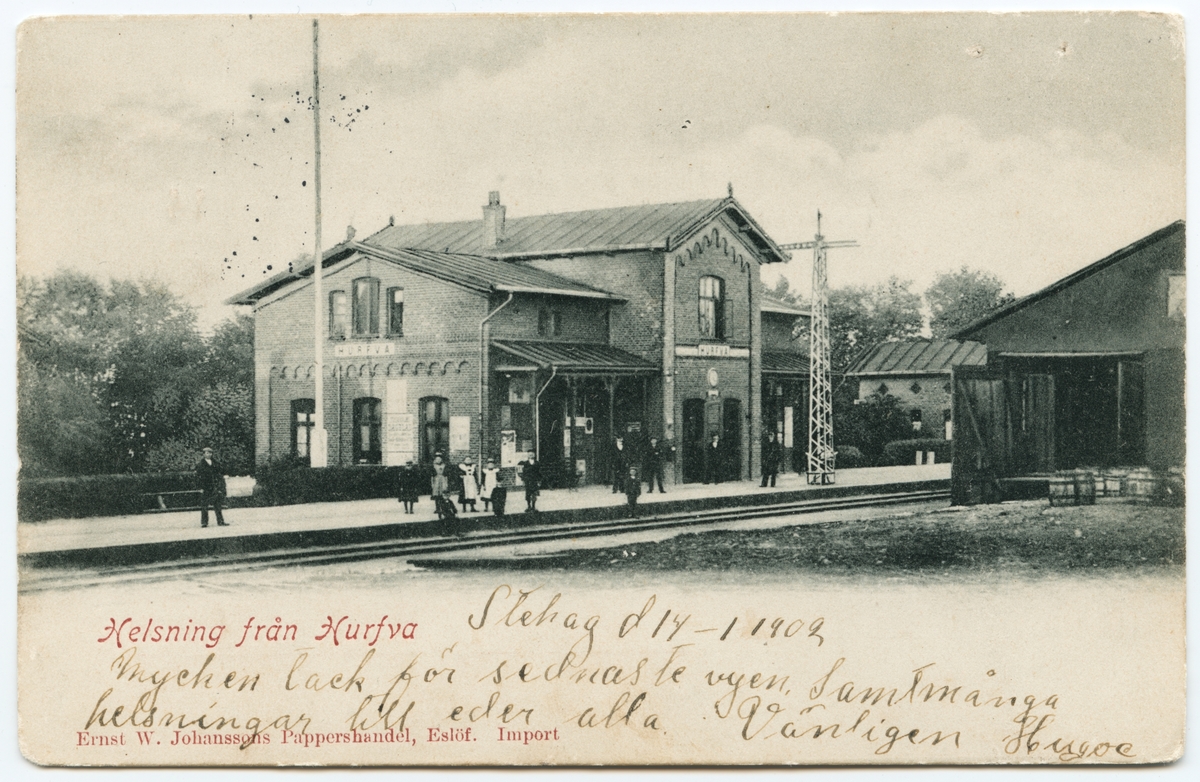 HURFVA
HURFVA
Helsning från Hurfva
Stehag d 14-1 1902
Mycken tack för sednaste vyen, Samt många
helsningar till eder alla. Vänligen Hugo
Ernst W. Johanssons Pappershandel, Eslöf. Import